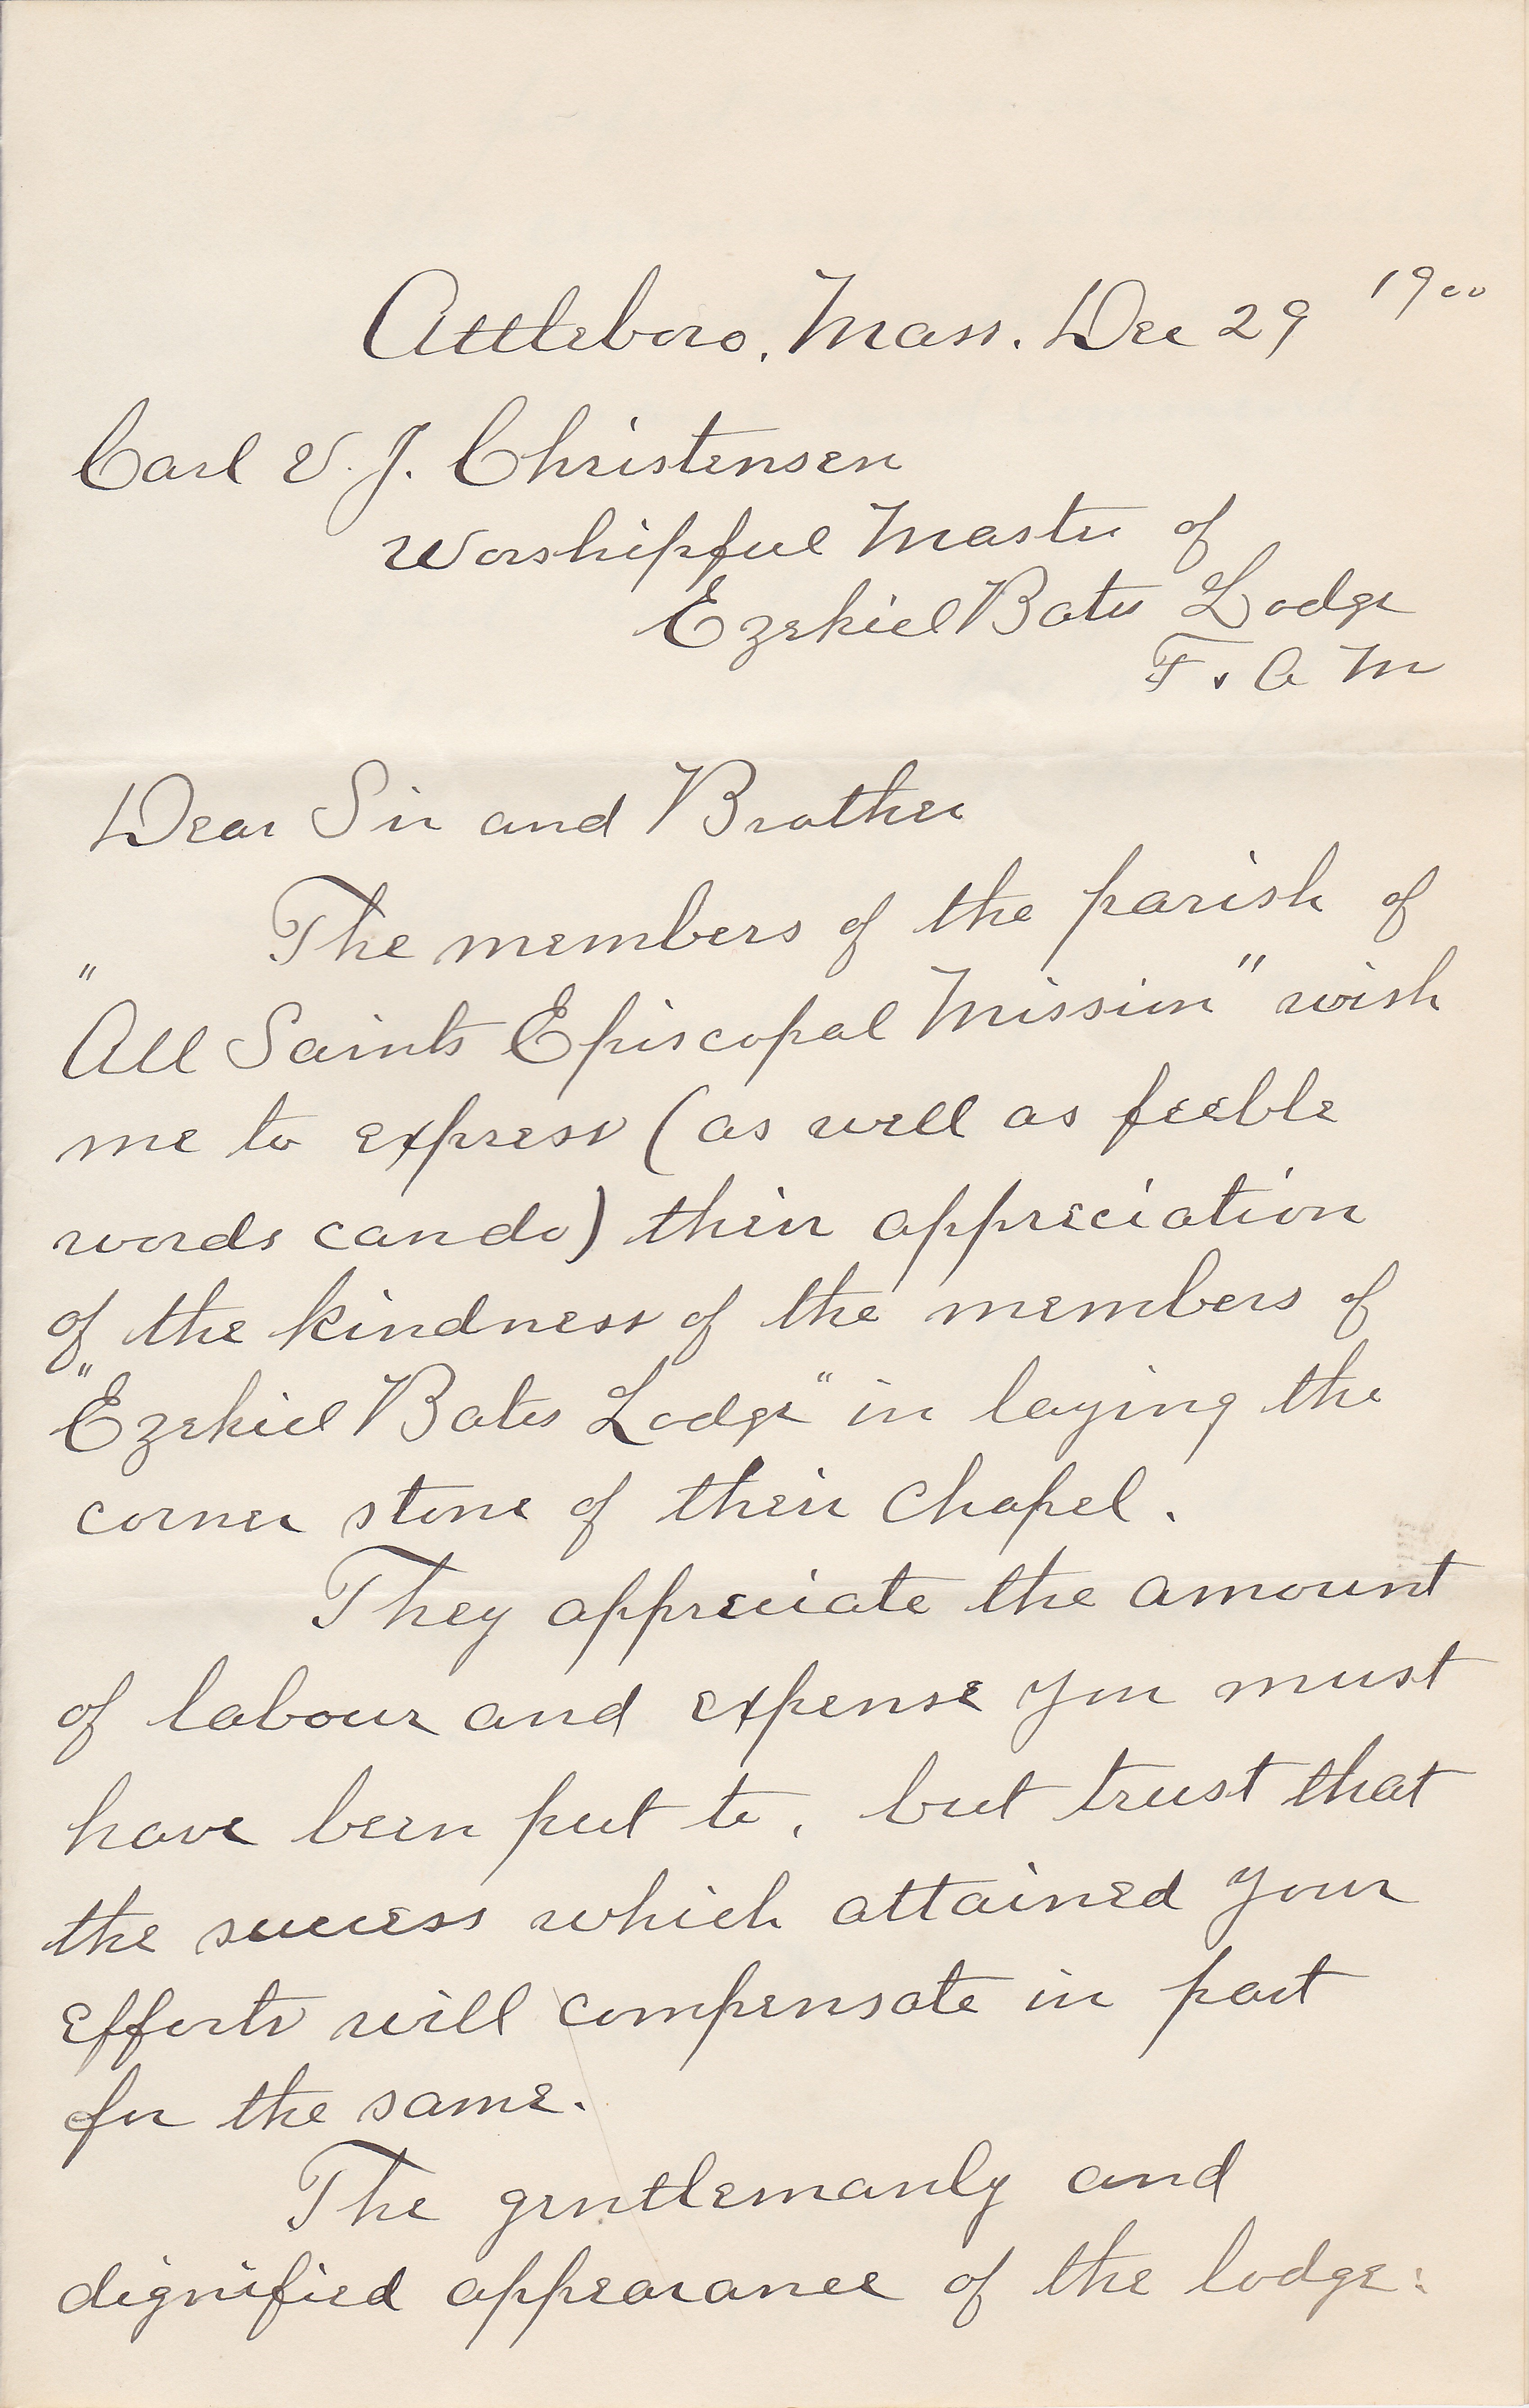 Attleboro, Mass. Dec 29 1900
Carl V. J. Christensen
Worshipful Master of
Ezekiel Bates Lodge
F. & A M
Dear Sir and Brother
The members of the parish of
"All Saints Episcopal Mission" wish
me to express (as well as feeble
words can do) their appreciation
of the kindness of the members of
"Ezekiel Bates Lodge" in laying the
corner stone of their chapel.
They appreciate the amount
of labour and expense you must
have been put to, but trust that
the success which attained your
efforts will compensate in part
for the same.
The gentlemanly and
dignified appearance of the lodge: